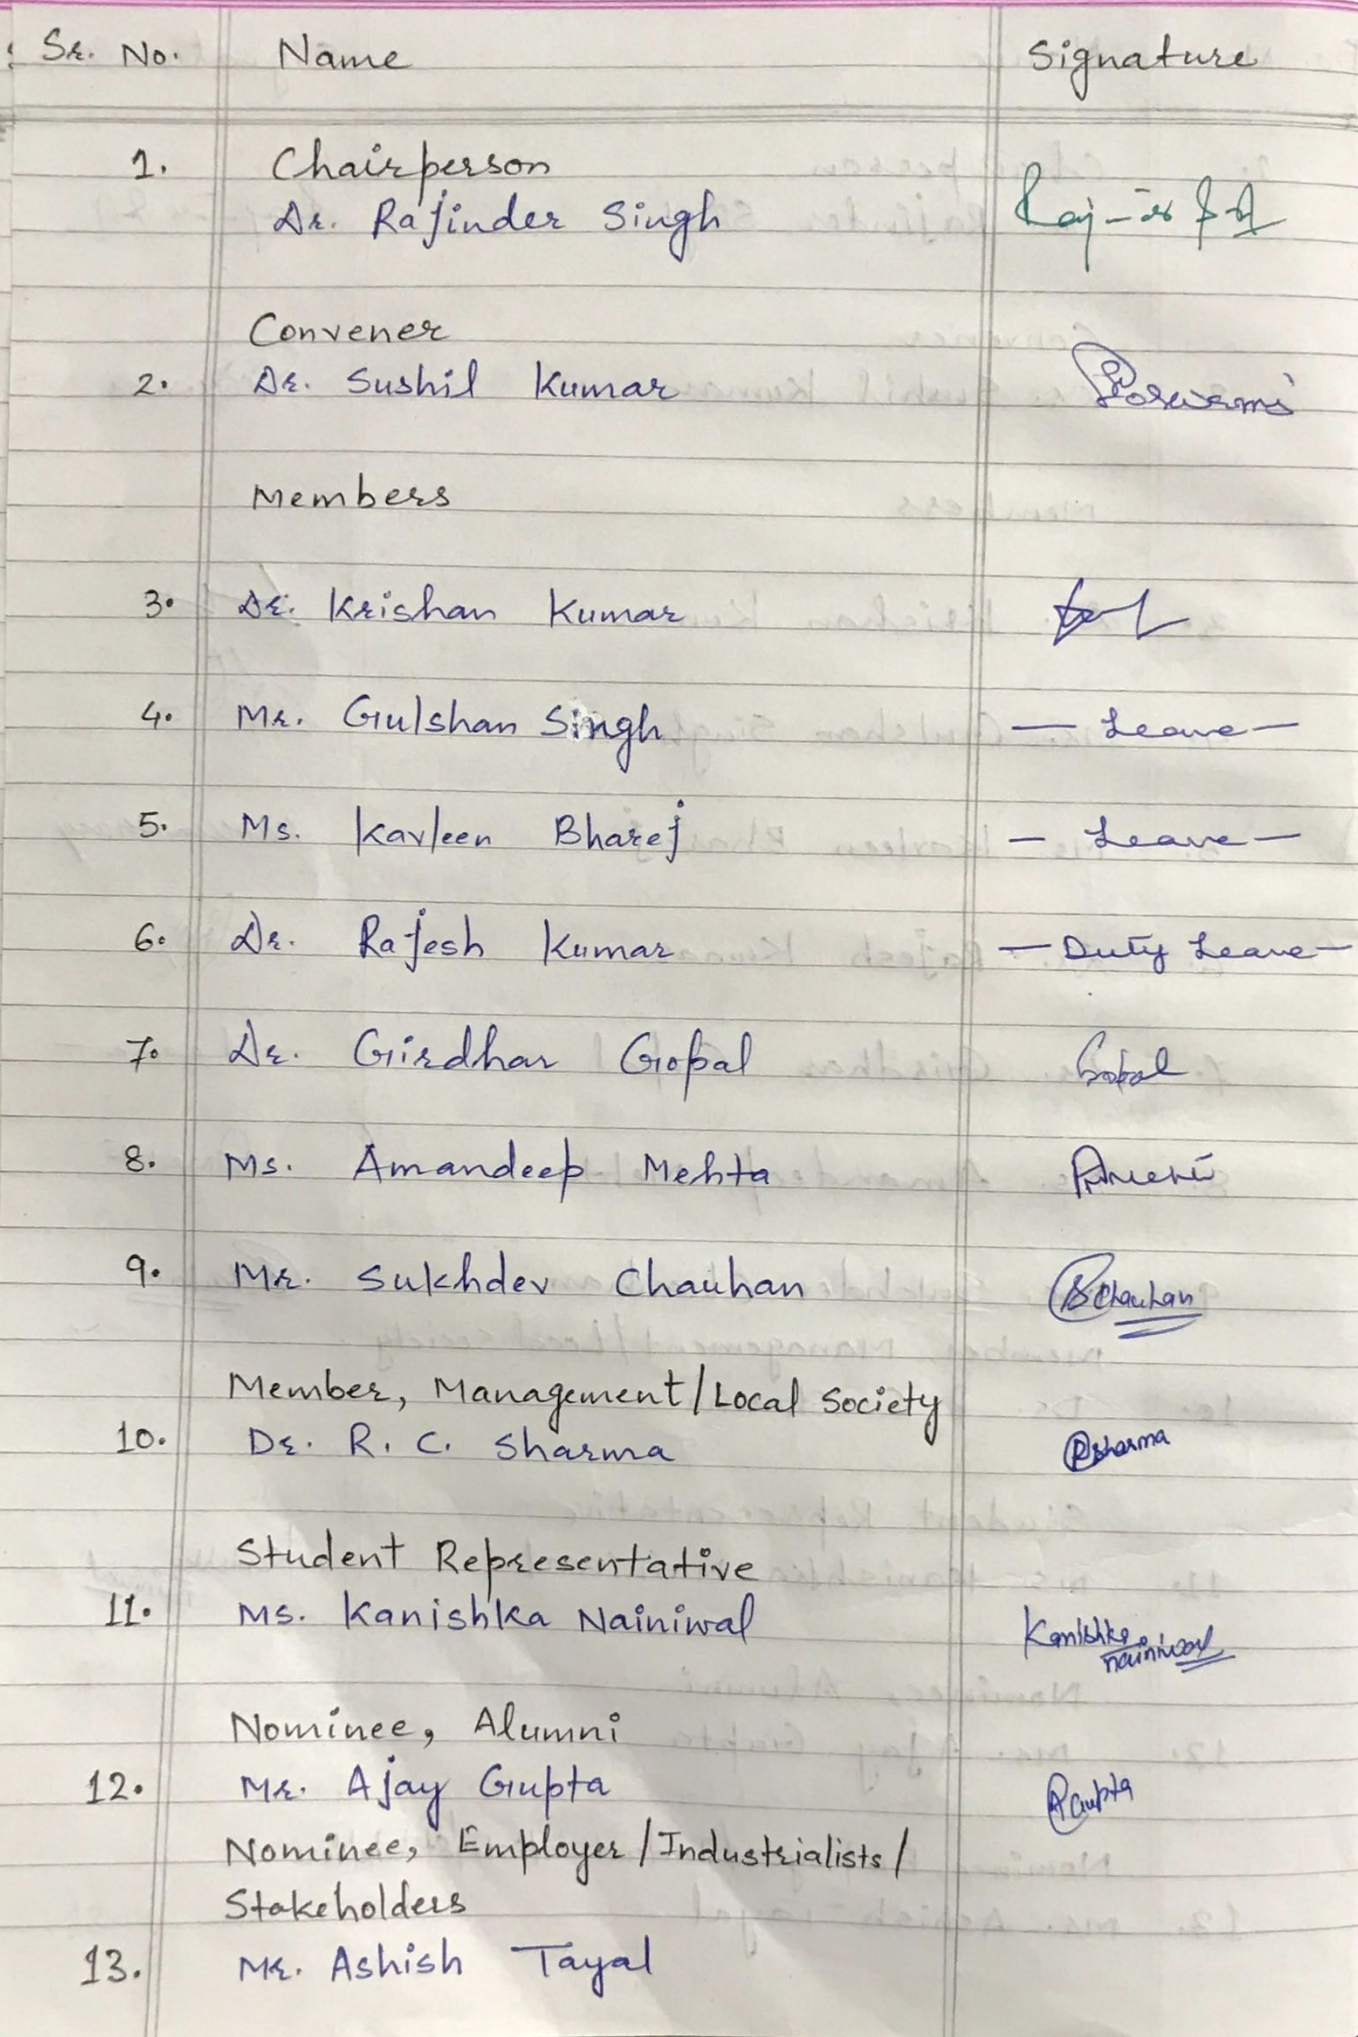 Sr. No. Name Signature
1. Chairperson
Dr. Rajinder Singh
Convener
2. Dr. Sushil Kumar
Members
3. Dr. Krishan Kumar
4. Mr. Gulshan Singh — Leave —
5. Ms. Kavleen Bharej — Leave —
6. Dr. Rajesh Kumar — Duty Leave —
7. Dr. Girdhar Gopal Gopal
8. Ms. Amandeep Mehta
9. Mr. Sukhdev Chauhan SChauhan
Member, Management/Local Society
10. Dr. R. C. Sharma RSharma
Student Representative
11. Ms. Kanishka Nainiwal Kanishka
nainiwal
Nominee, Alumni
12. Mr. Ajay Gupta AGupta
Nominee, Employer/Industrialists/
Stakeholders
13. Mr. Ashish Tayal